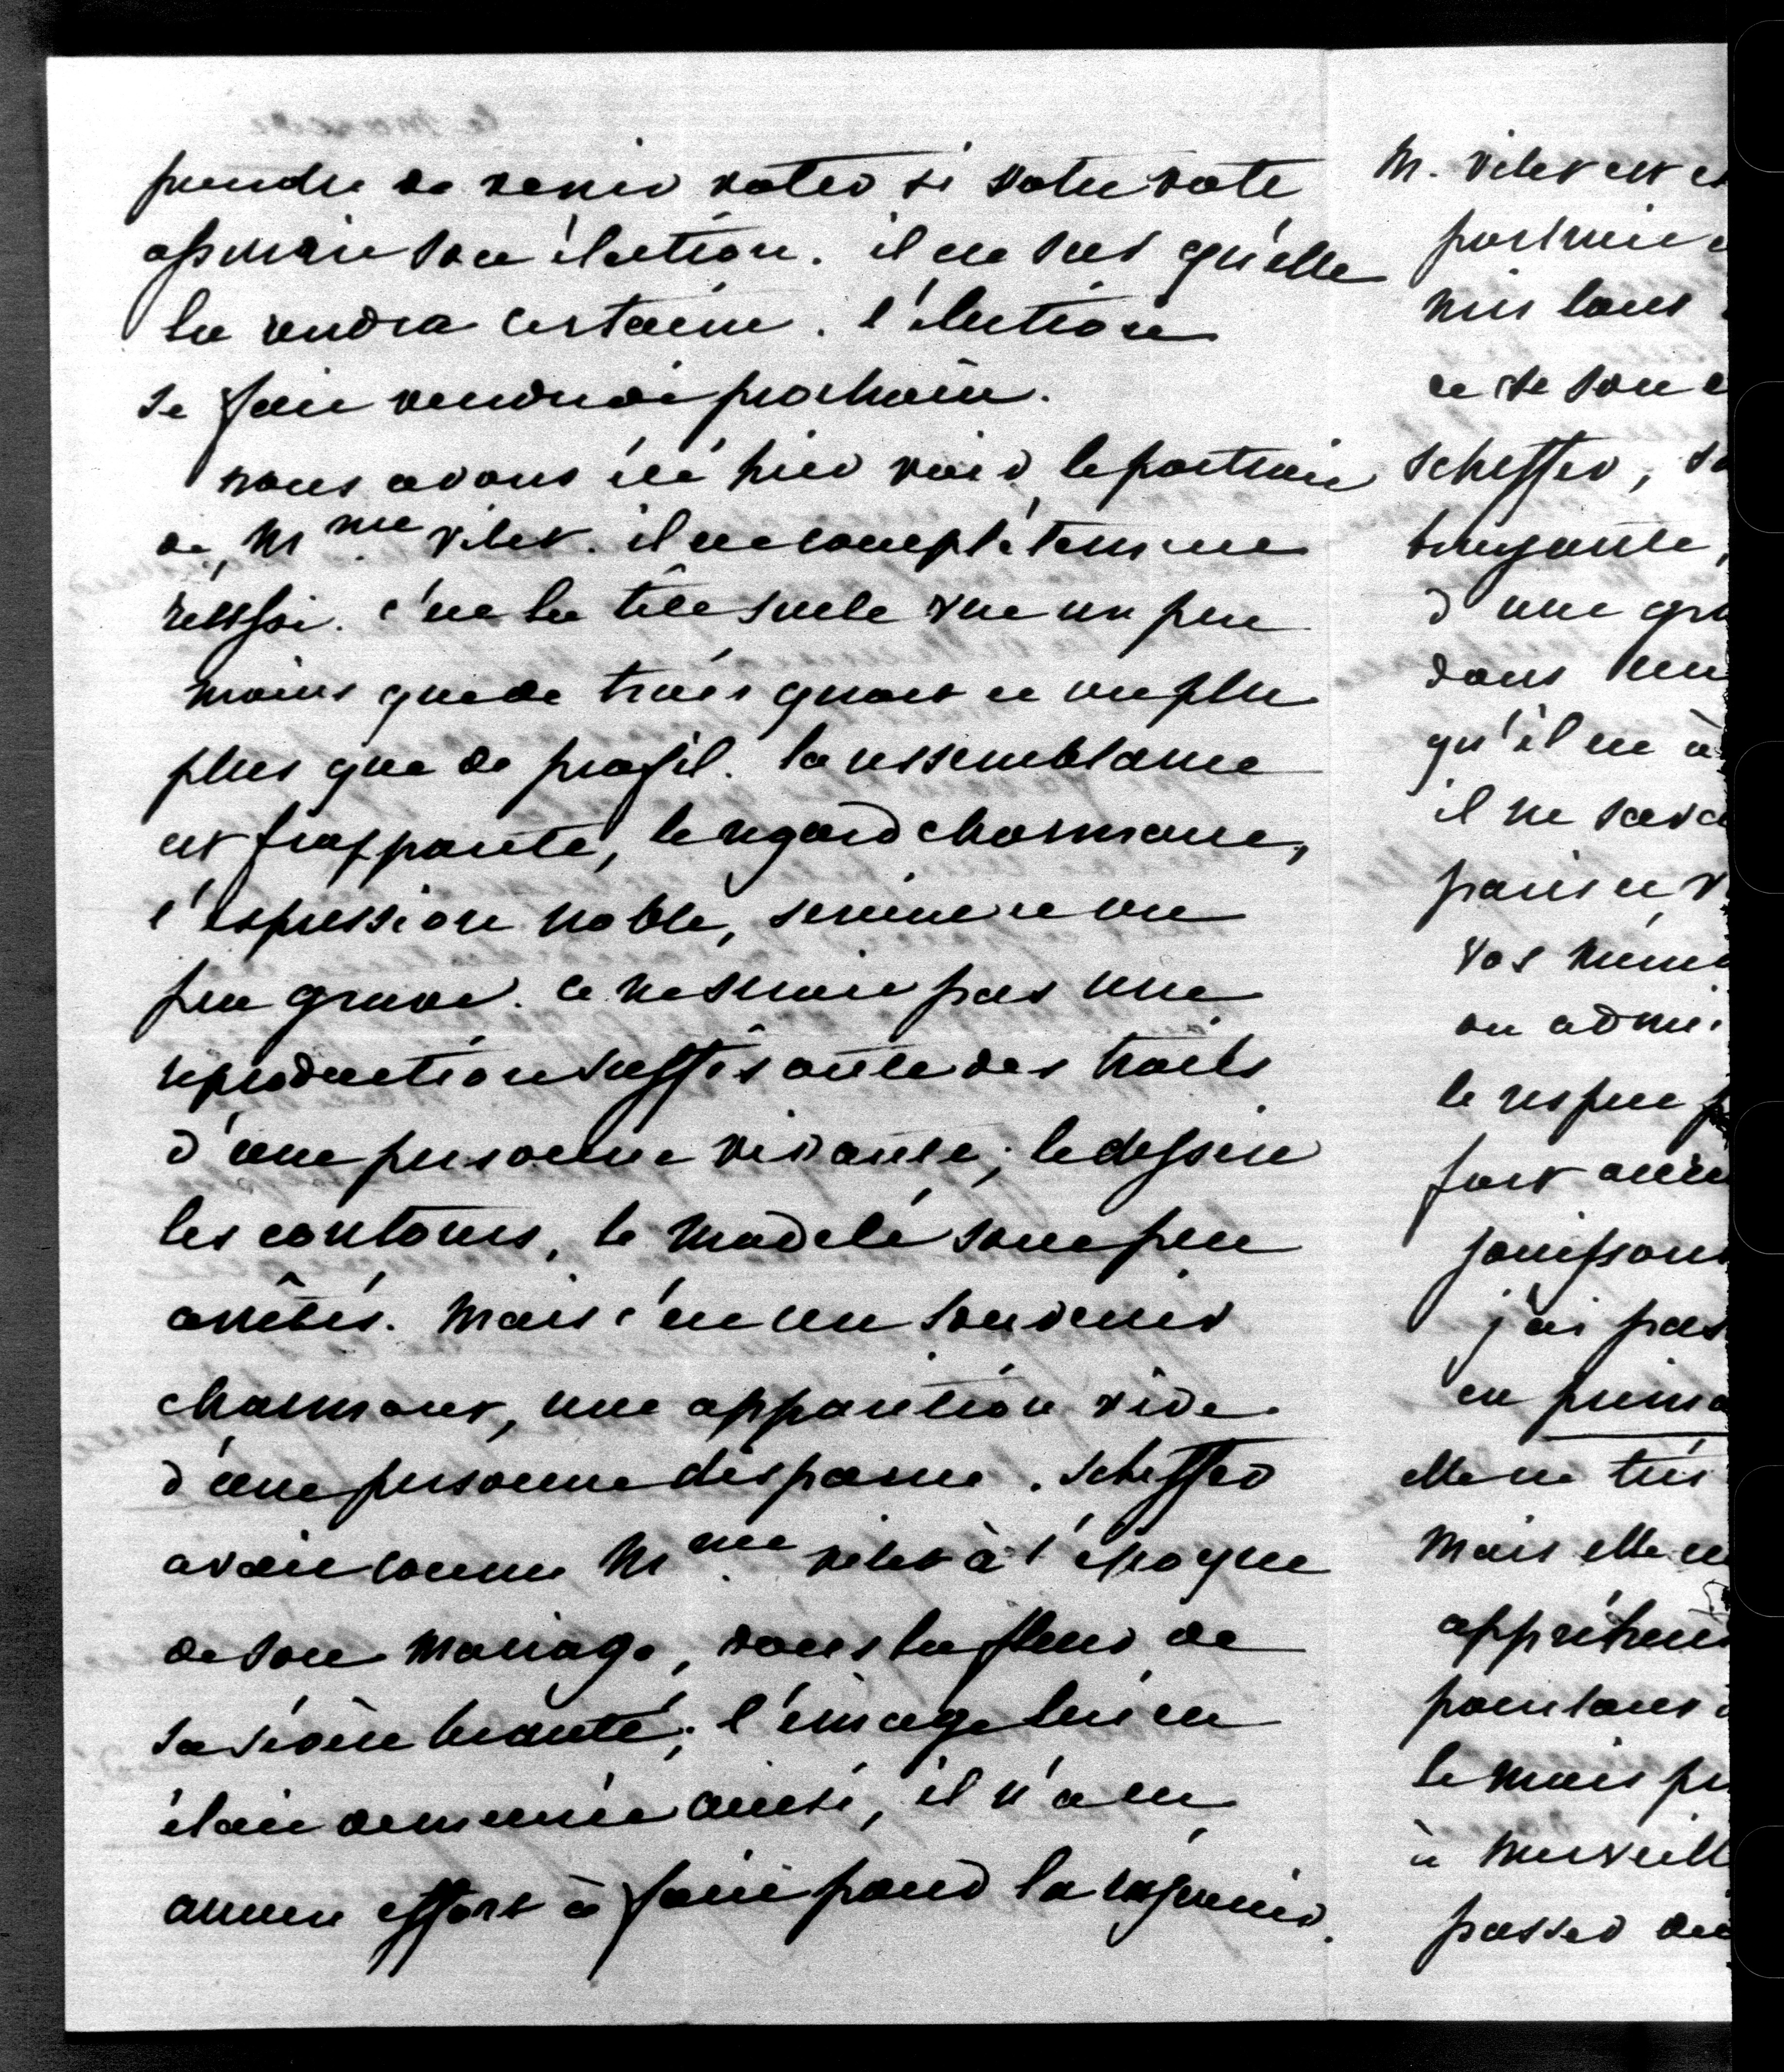 prendre de venir voter si votre vote
assuroit son élection. il est sur qu'elle
la rendra certaine. l'élection
se fait vendredi prochain.
nous avons été hier voir le portrait
de Mme vitet. il est complètement
reussi. c'est la tête seule vue un peu
moins que de trois quart et un peu
plus que de profil. la ressemblance
est frappante, le regard charmant,
l'expression noble, sereine et un
peu grave. ce ne seroit pas une
reproduction suffisante des traits
d'une personne vivante; le dessin
les contours, le modelé sont peu
arrêtés. Mais c'est un souvenir
charmant, une apparition vive
d'une personne disparue. scheffer
avait connu Mme vitet à l'époque
de son mariage, dans la fleur de
sa sévère beauté; l'image lui en
était demeurée ainsi, il n'a eu
aucun effort à faire pour la rajeunir.
M. vitet est
portrait
mis tout
et de son
scheffer,
bruyante,
d'une
dans
qu'il est à
il ne
paris et
vos
on
le respect
fort
jouissons
j'ai
en
elle est très
Mais elle
pourtant
le mois
à
passer